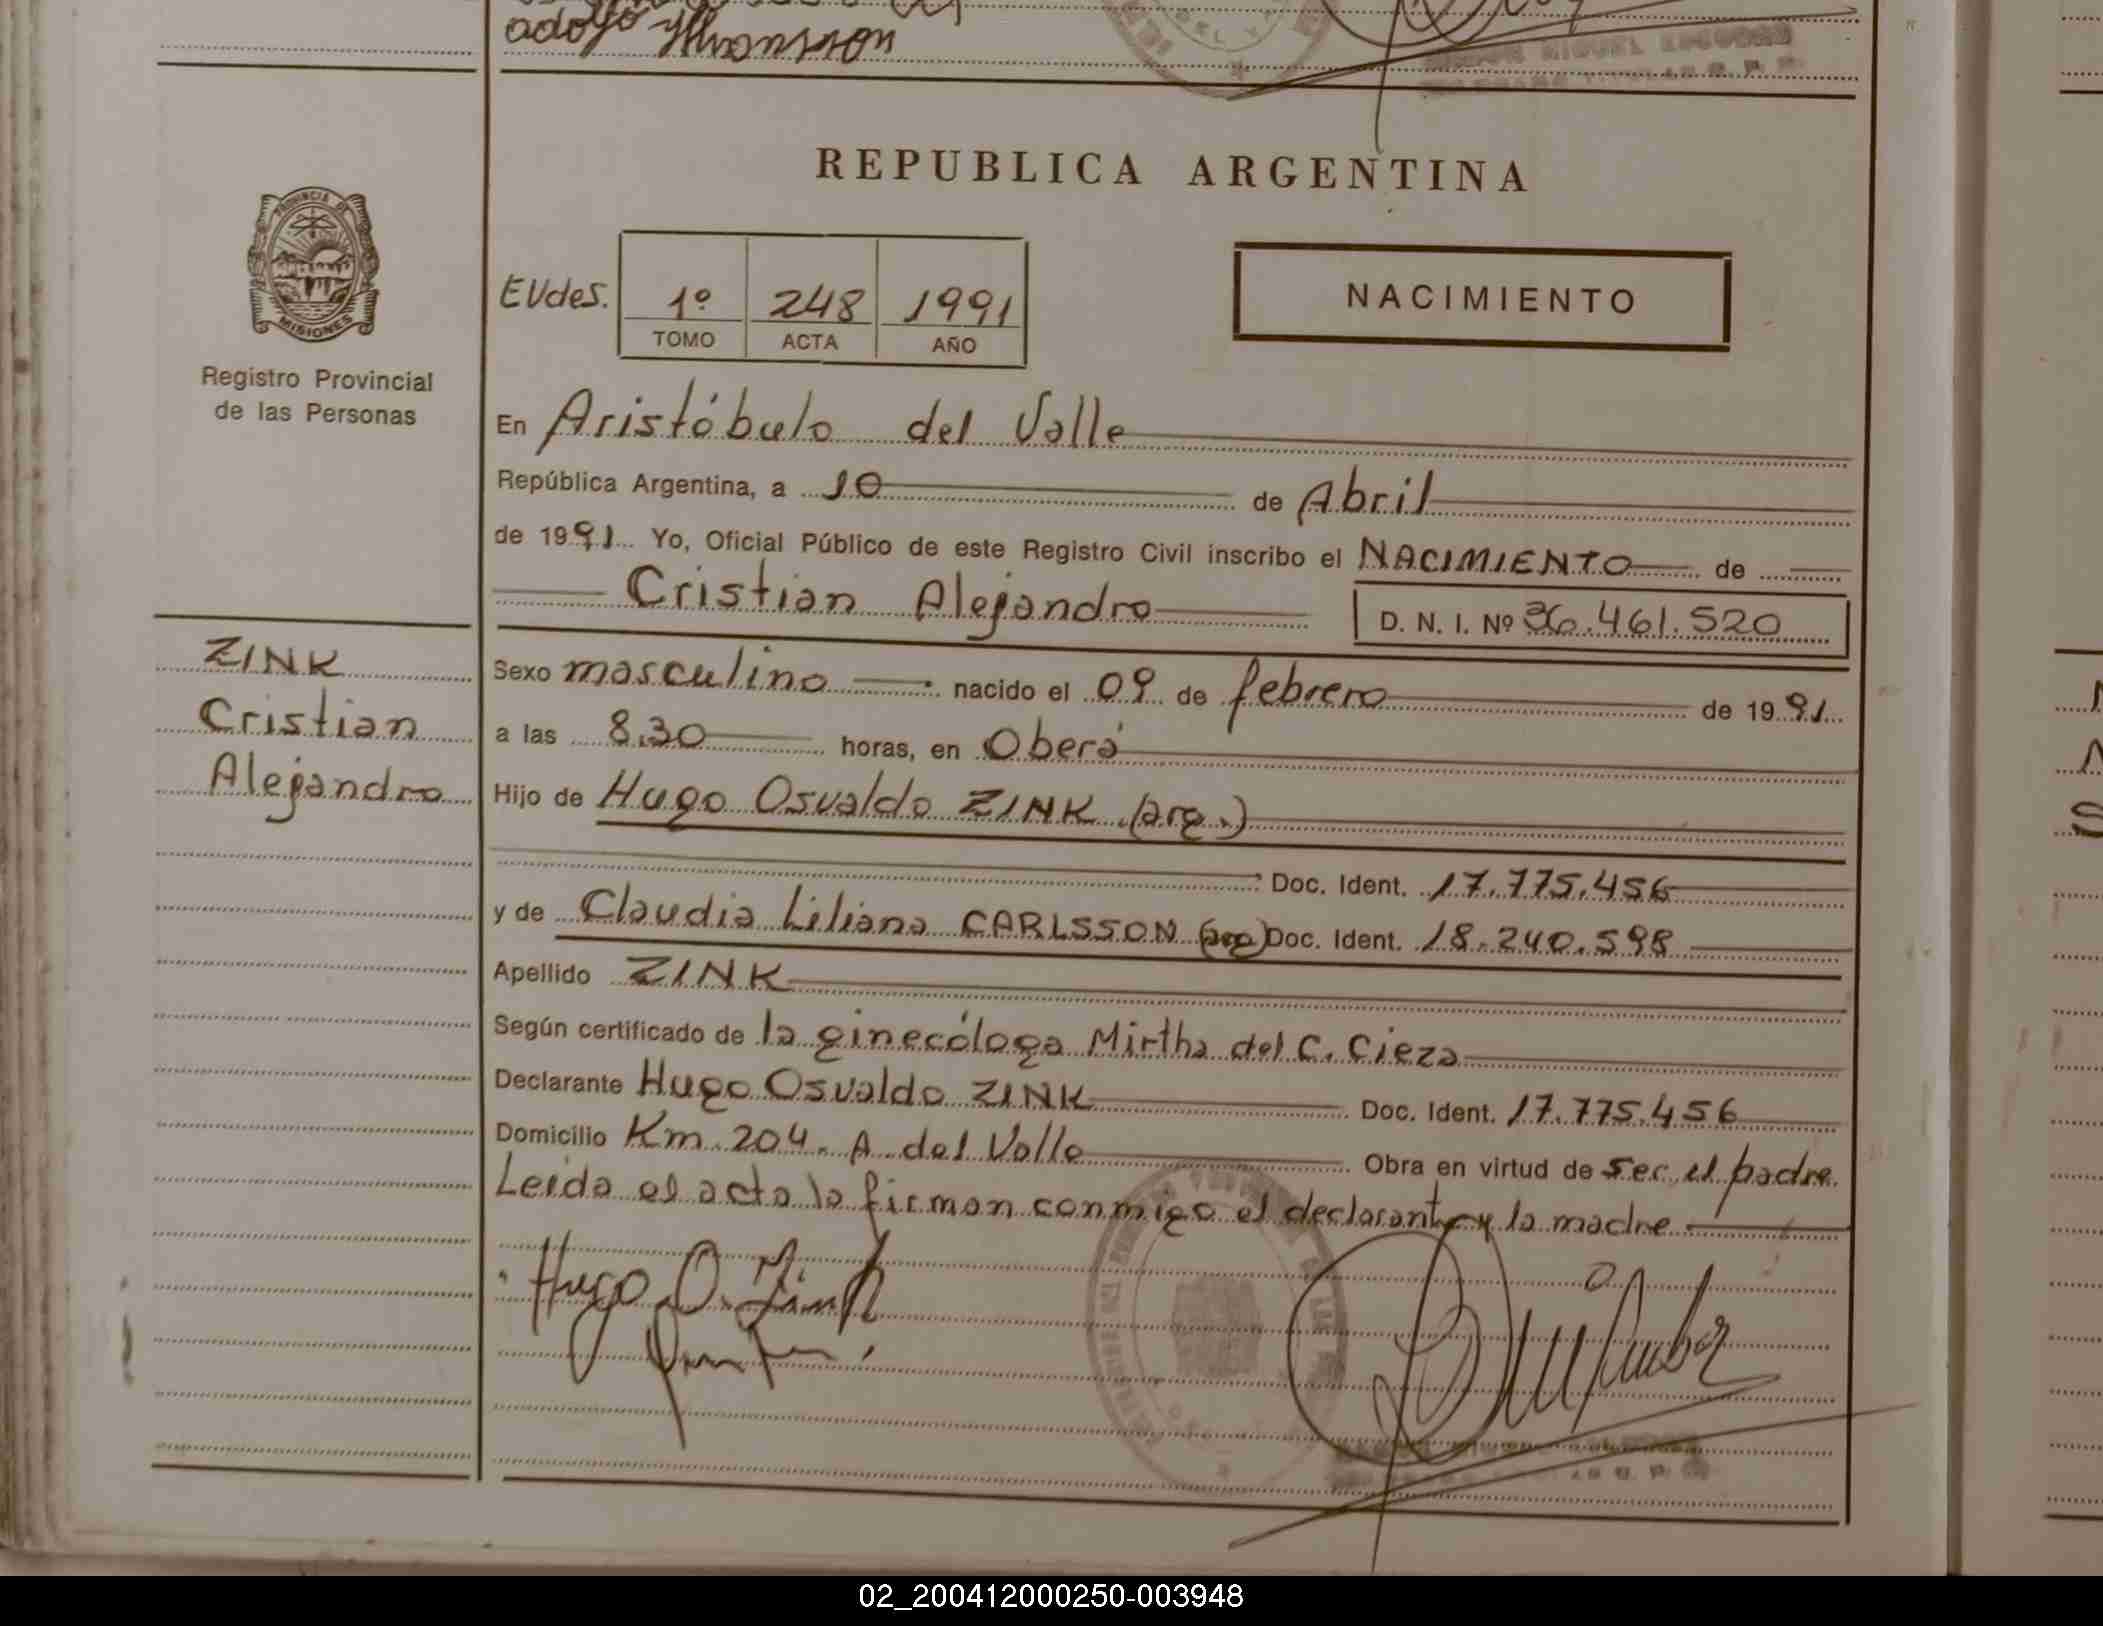 adolfo
REPUBLICA ARGENTINA
PROVINCIA DE
MISIONES
Registro Provincial
de las Personas
EVdes. 1º 248 1991
TOMO ACTA AÑO
NACIMIENTO
En Aristóbulo del Valle
República Argentina, a 10 de Abril
de 1991 Yo, Oficial Público de este Registro Civil inscribo el NACIMIENTO de
Cristian Alejandro D. N. I. Nº 36.461.520
ZINK
Cristian
Alejandro
Sexo masculino nacido el 09 de febrero de 1991
a las 8.30 horas, en Oberá
Hijo de Hugo Osvaldo ZINK (arg.)
Doc. Ident. 17.775.456
y de Claudia Liliana CARLSSON (arg) Doc. Ident. 18.240.598
Apellido ZINK
Según certificado de la ginecóloga Mirtha del C. Cieza
Declarante Hugo Osvaldo ZINK Doc. Ident. 17.775.456
Domicilio Km. 204. A. del Valle Obra en virtud de ser el padre.
Leida el acta la firman conmigo el declarante y la madre
Hugo O. Zink
02_200412000250-003948